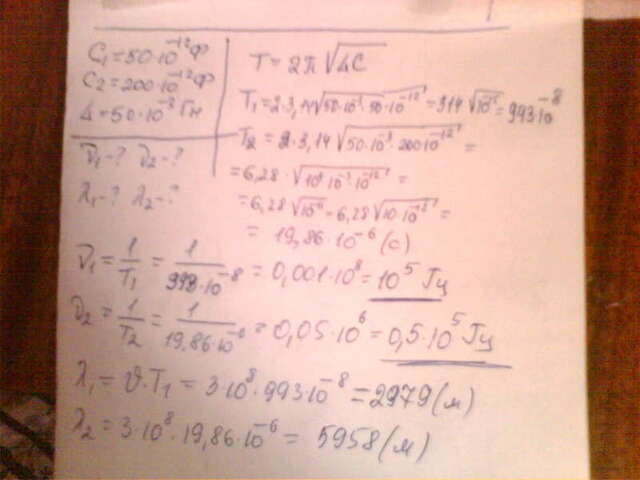 C₁=50·10⁻¹²Ф
C₂=200·10⁻¹²Ф
L=50·10⁻³Гн
ν₁-? ν₂-?
λ₁-? λ₂-?
T=2π√LC
T₁=2·3,14√50·10⁻³·50·10⁻¹²=314√10⁻¹=993·10⁻⁸
T₂=2·3,14√50·10⁻³·200·10⁻¹²=
=6,28·√10⁴·10⁻³·10⁻¹²=
=6,28√10⁻¹¹=6,28√10·10⁻¹²=
=19,86·10⁻⁶(с)
ν₁=1/T₁=1/993·10⁻⁸=0,001·10⁸=10⁵Гц
ν₂=1/T₂=1/19,86·10⁻⁶=0,05·10⁶=0,5·10⁵Гц
λ₁=ϑ·T₁=3·10⁸·993·10⁻⁸=2979(м)
λ₂=3·10⁸·19,86·10⁻⁶=5958(м)